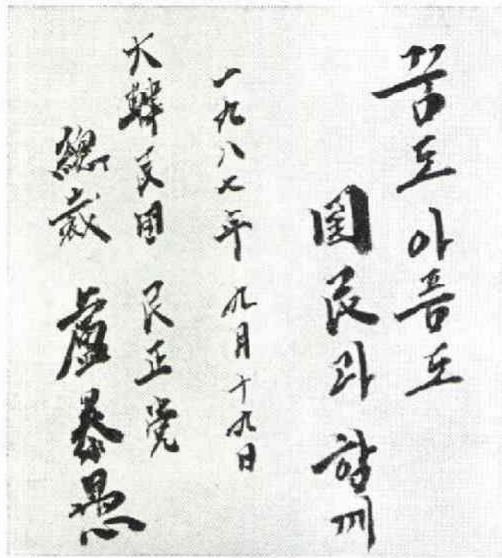 꿈도 아픔도
国民과 함께
一九八七年 九月 十九日
大韓民国 民正党
總裁 盧泰愚